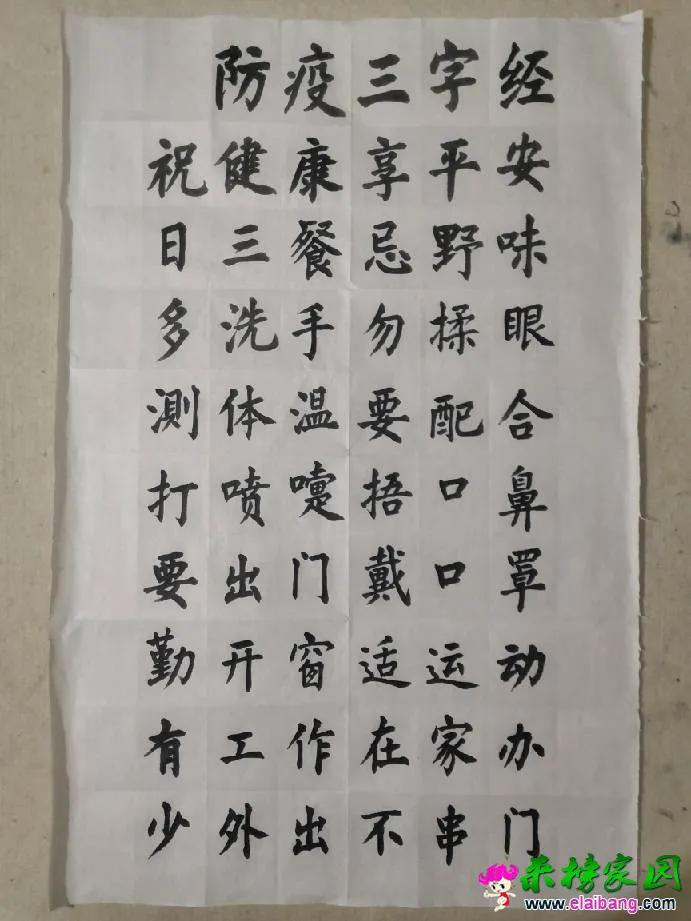 防疫三字经
祝健康享平安
日三餐忌野味
多洗手勿揉眼
测体温要配合
打喷嚏捂口鼻
要出门戴口罩
勤开窗适运动
有工作在家办
少外出不串门
来榜家园
www.elaibang.com